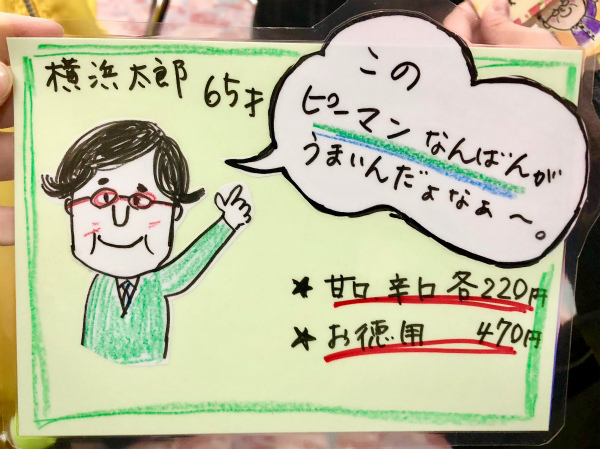 横浜太郎 65才
この
ピーマンなんばんが
うまいんだよなぁ〜。
★ 甘口 辛口 各220円
★ お徳用 470円